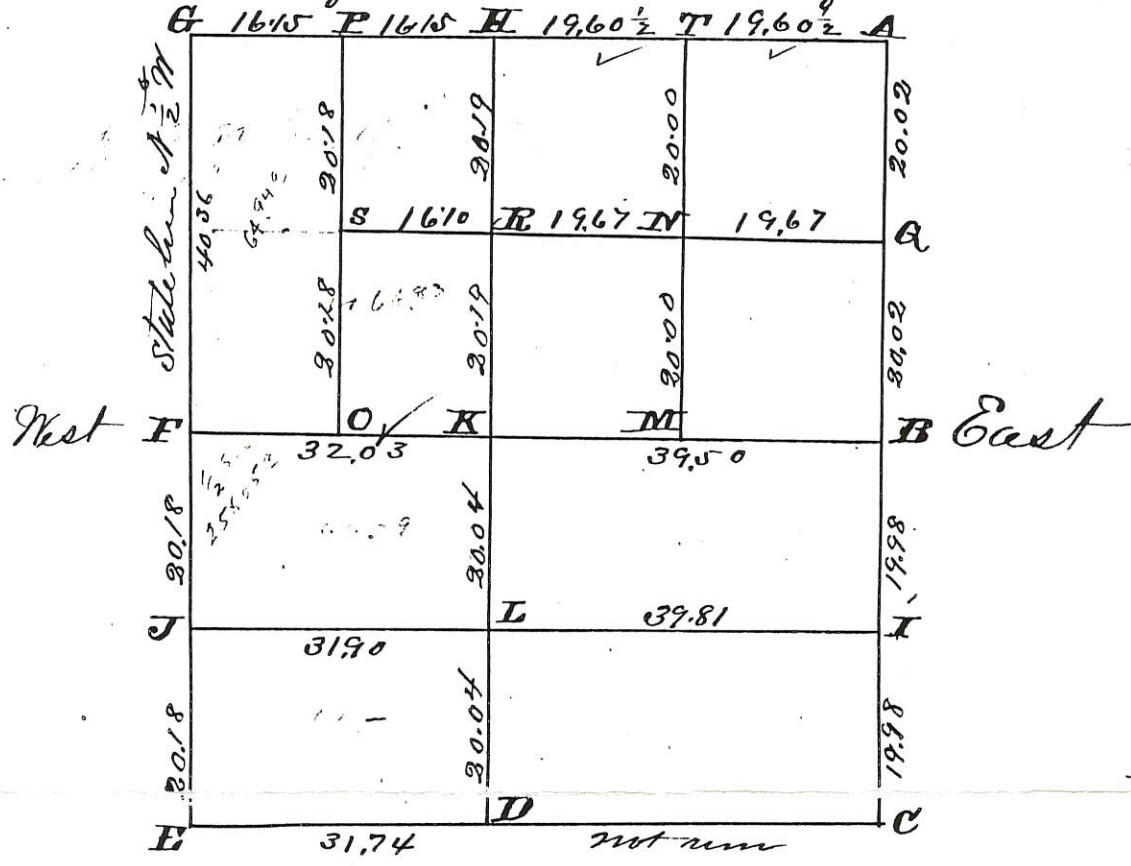 G 16.15 P 16.15 H 19,60 1/2 T 19,60 1/2 A
State line N 1/2 W
40.36
20.18
20.19
20.00
20.02
64.940
S 16.10 R 19.67 N 19,67 Q
20.18
64.83
20.19
20.00
20,02
West F O K M B East
32,03 39,50
20.18
20.04
19.98
J L 39.81 I
31,90
20.18
20.04
19.98
E D C
31,74 not run